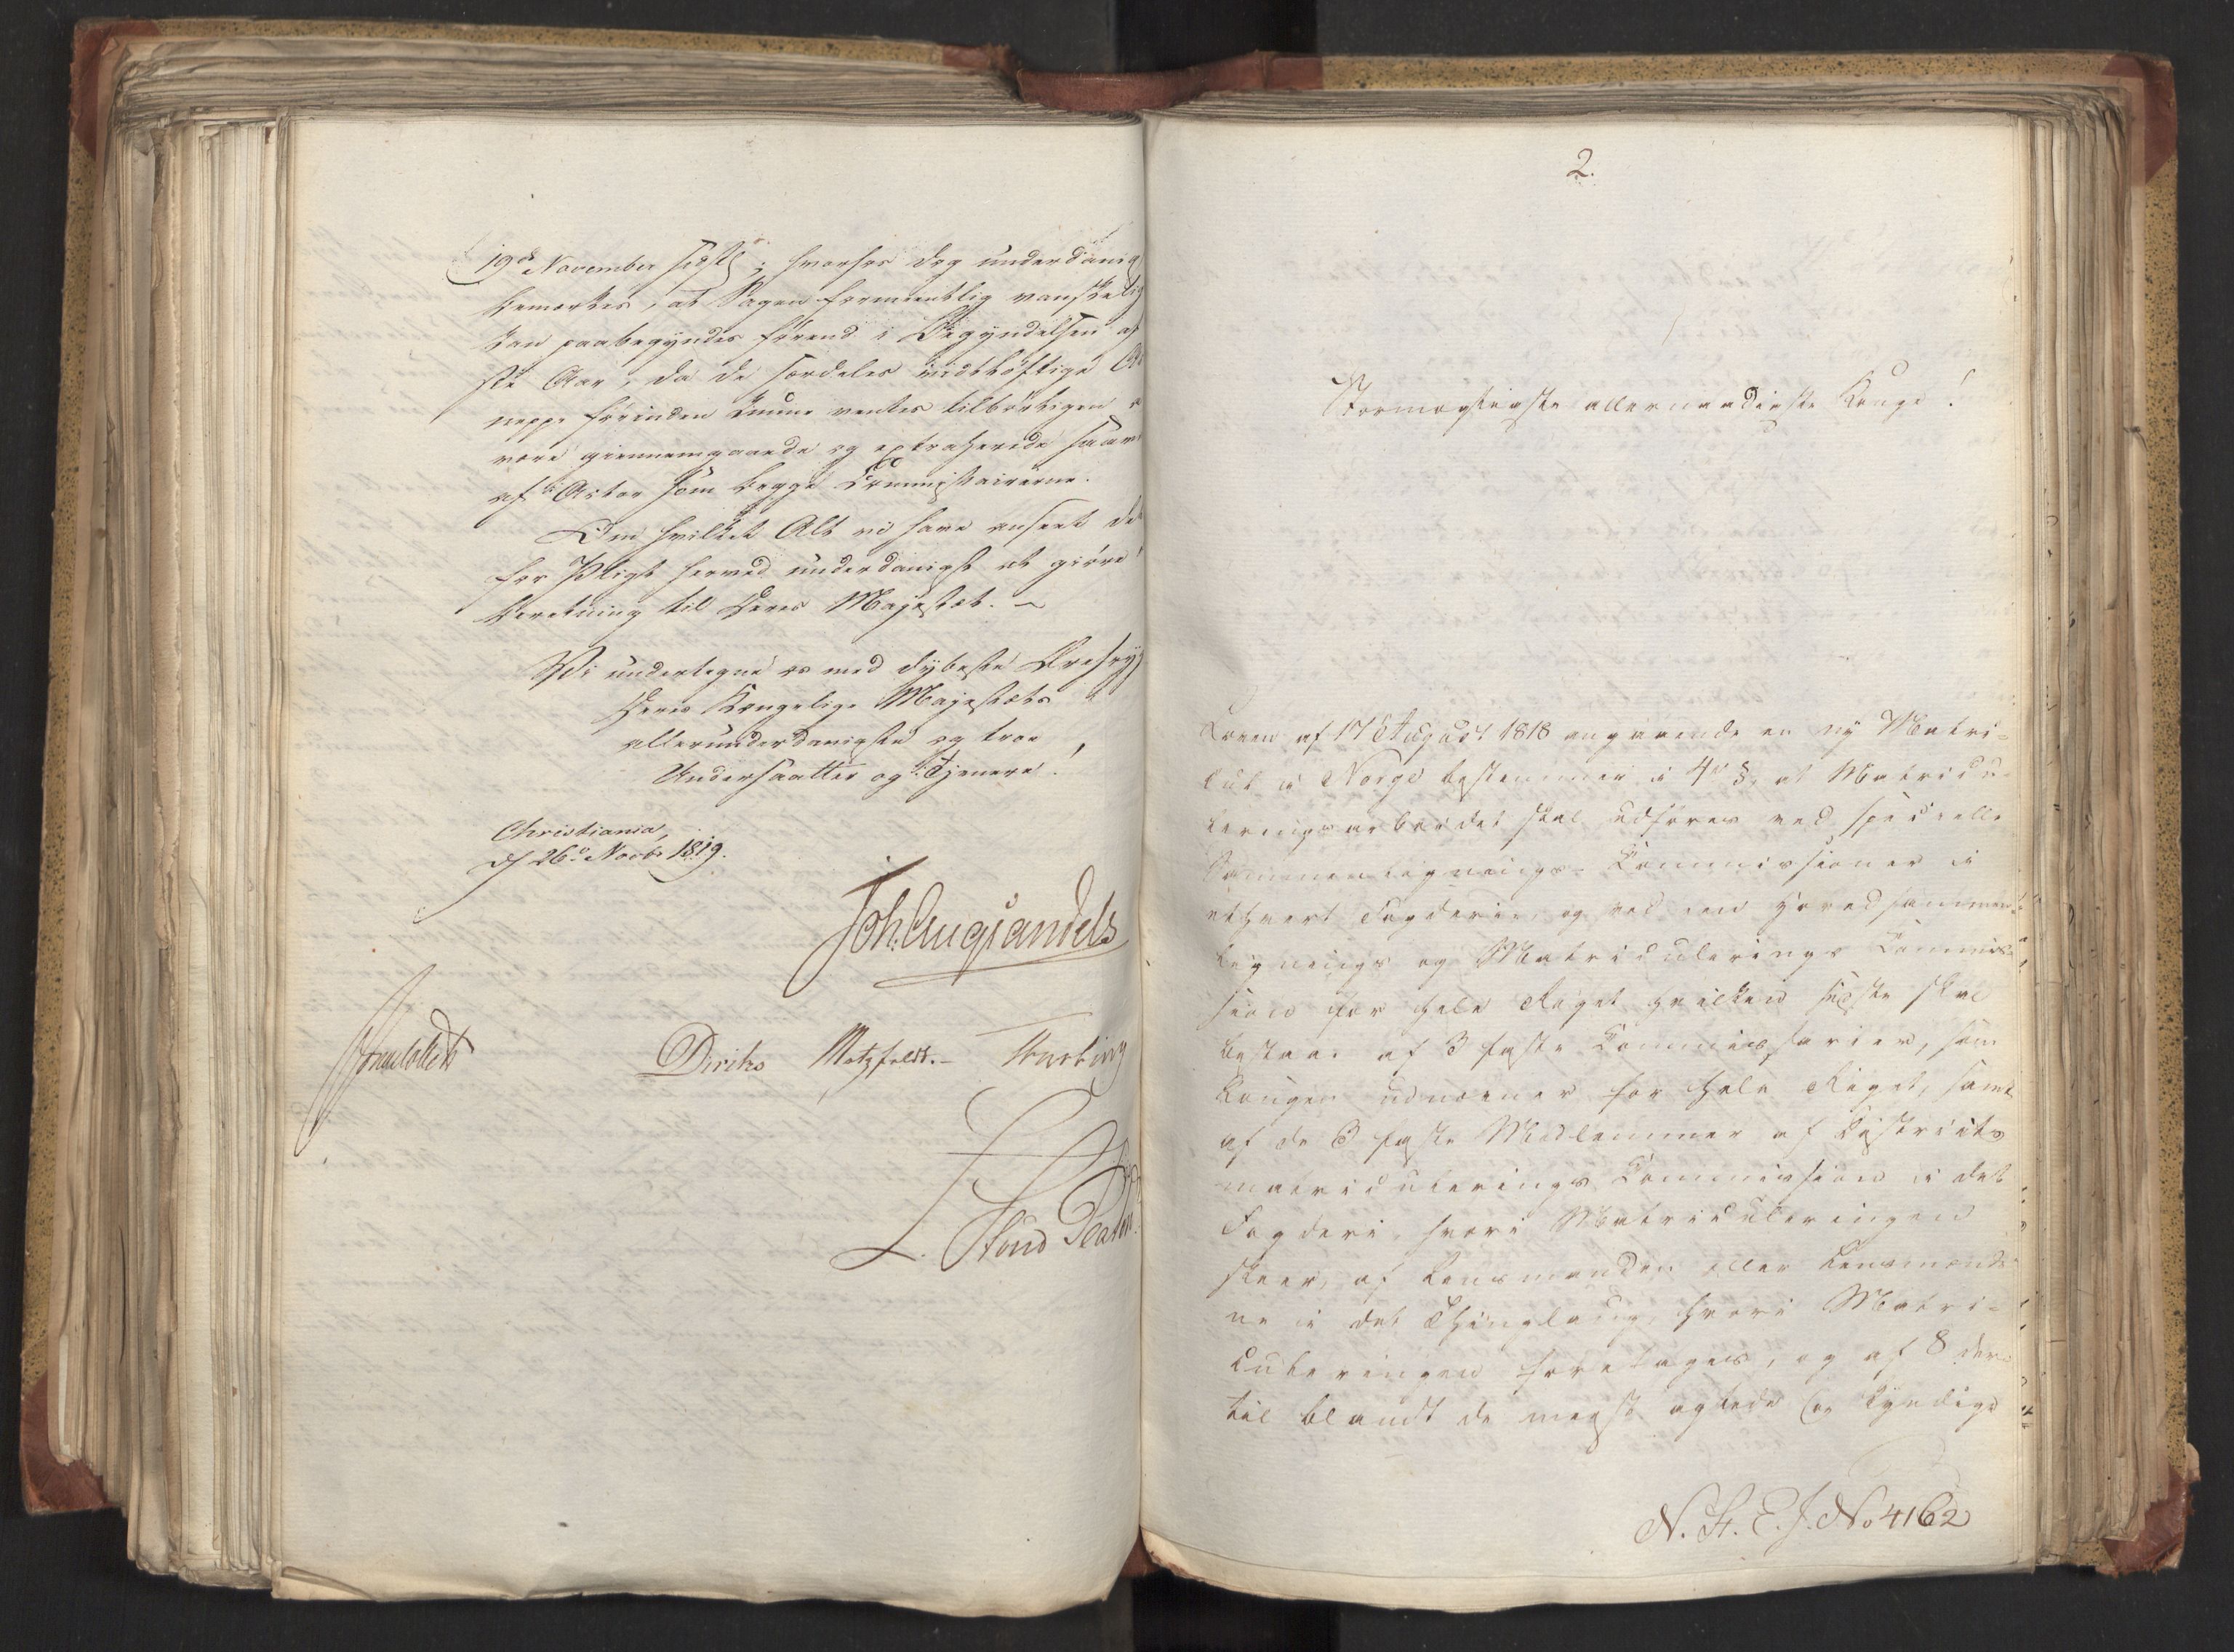 19de November sidstl; hvorhos dog underdanig
bemærkes, at Sagen formeentlig vanskelig
kan paabegyndes förend i Begyndelsen af
ste Aar, da de særdeles vidtløftige
neppe forinden kunne ventes tilbörligen
være giennemgaaede og extraherede saavel
af Actor som begge Commissairerne.
Om hvilket Alt vi have anseet det
for Pligt herved underdanigst at giöre
beretning til Deres Majestæt. -
Vi undertegne os med dybeste Ærefrygt
Deres Kongelige Majestæts
allerunderdanigste og troe
Undersaatter og Tjenere!
Christiania,
d 26de Novbr 1819.
Joh. Aug Sandels
Sommerhielm
Diriks Motzfeldt. -
L. Stoud Platou
2.
Stormægtigste allernaadigste Konge!
Loven af 17 August 1818 angaaende en ny Matri=
kul i Norge bestemmer i 4de §, at Matricu-
leringsarbeidet skal udføres ved specielle
Sammenlignings-Commissioner i
ethvert Fogderie, og ved een Hovedsammen=
lignings og Matriculerings Commis=
sion for hele Riget hvilken sidste skal
bestaae af 3 faste Commissarier, som
Kongen udnævner for hele Riget, samt
af de 3 faste Medlemmer af Districts
matriculerings Commission i det
Fogderi, hvori Matriculeringen
skeer, af Lensmanden eller Lensmænde=
ne i det Thinglaug, hvori Matri=
culeringen foretages, og af 8 der
til blandt de meest agtede og kyndige
N. St. E. J. No 4162